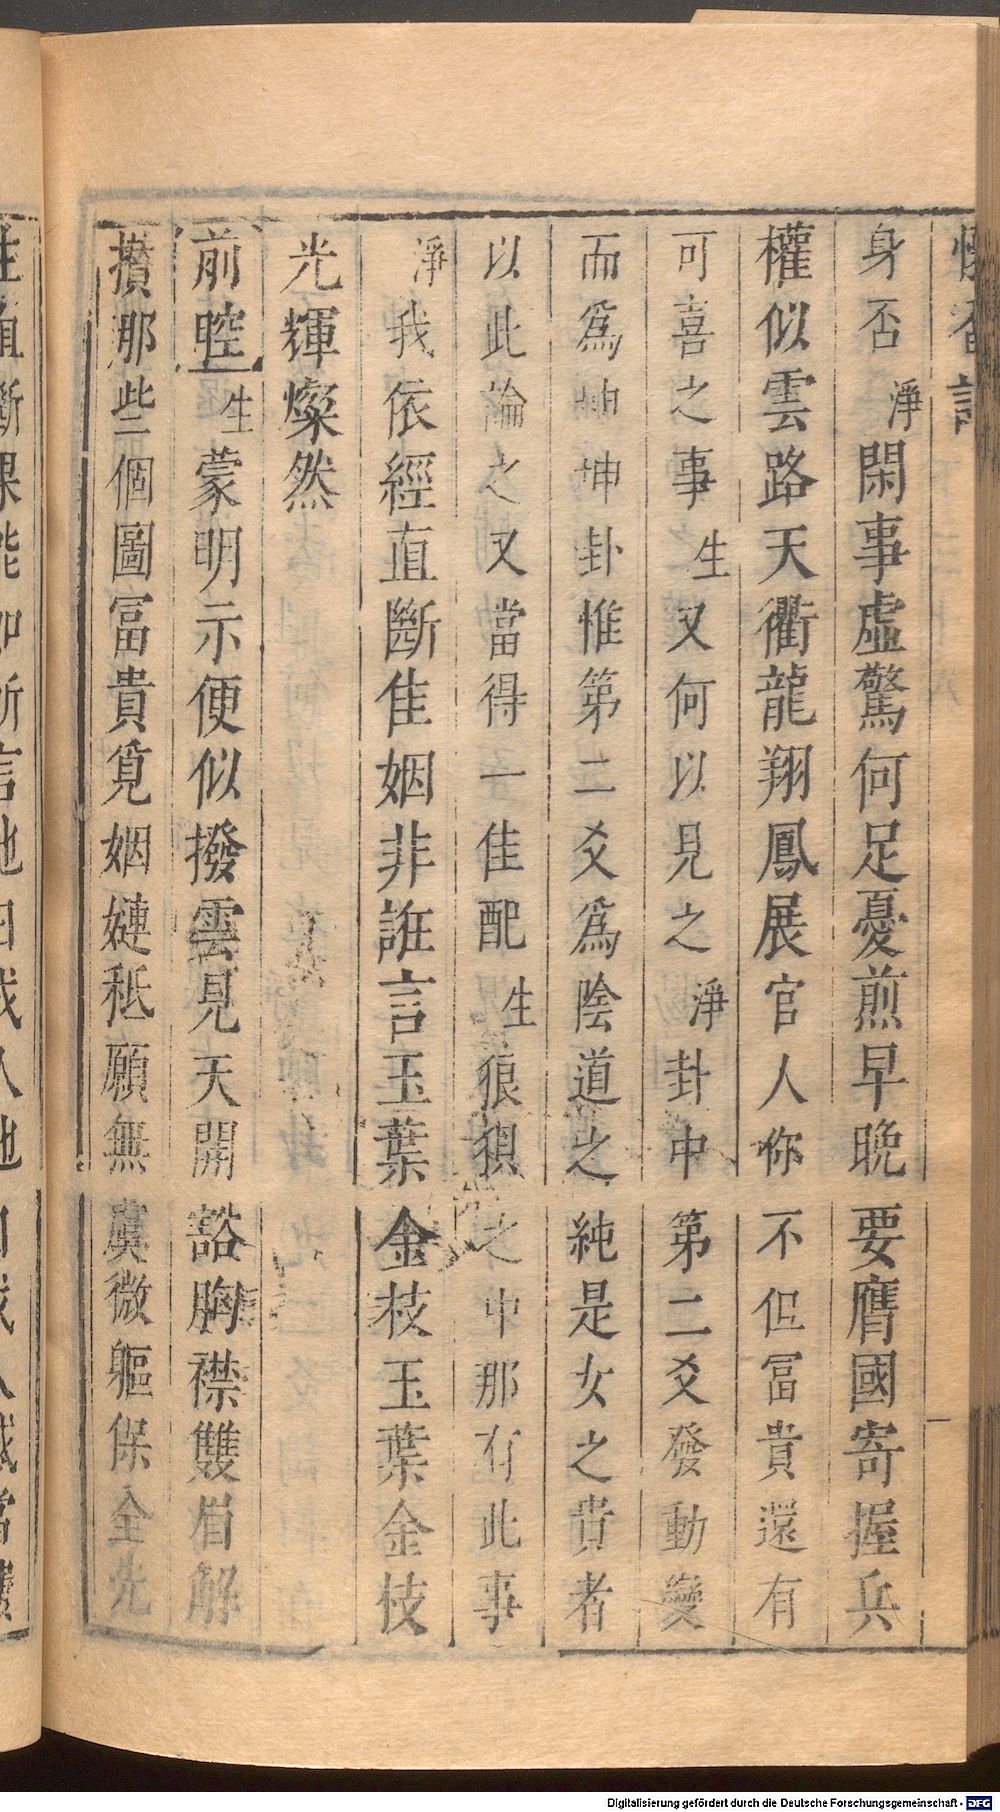 懷香記
身否淨閑事虛驚何足憂煎早晚要膺國寄握兵
權似雲路天衢龍翔鳳展官人你不但冨貴還有
可喜之事生又何以見之淨卦中第二爻發動變
而爲坤坤卦惟第二爻爲陰道之純是女之貴者
以此論之又當得一佳配生狼狽之中那有此事
淨我依經直斷佳姻非誑言玉葉金枝玉葉金枝
光輝燦然
前腔生蒙明示便似撥雲見天開豁胸襟雙眉解
攢那些個圖冨貴覓姻婕秪願無虞微軀保全先
Digitalisierung gefördert durch die Deutsche Forschungsgemeinschaft - DFG